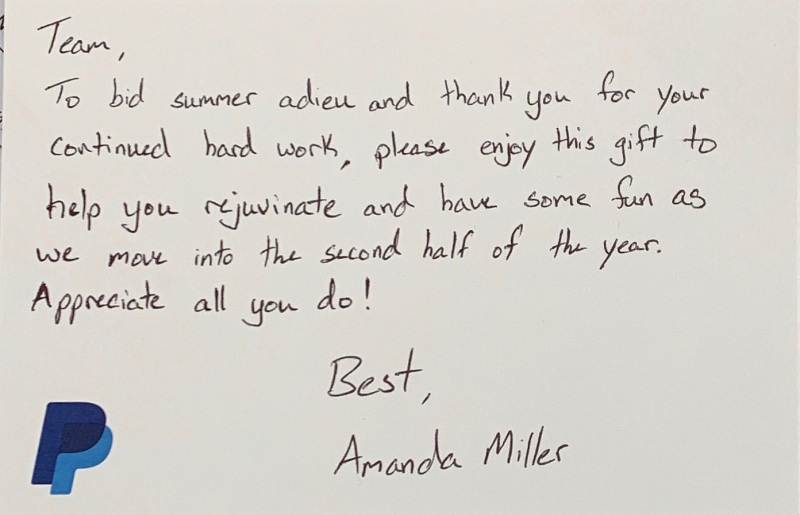 Team,
To bid summer adieu and thank you for your
continued hard work, please enjoy this gift to
help you rejuvinate and have some fun as
we move into the second half of the year.
Appreciate all you do!
Best,
Amanda Miller